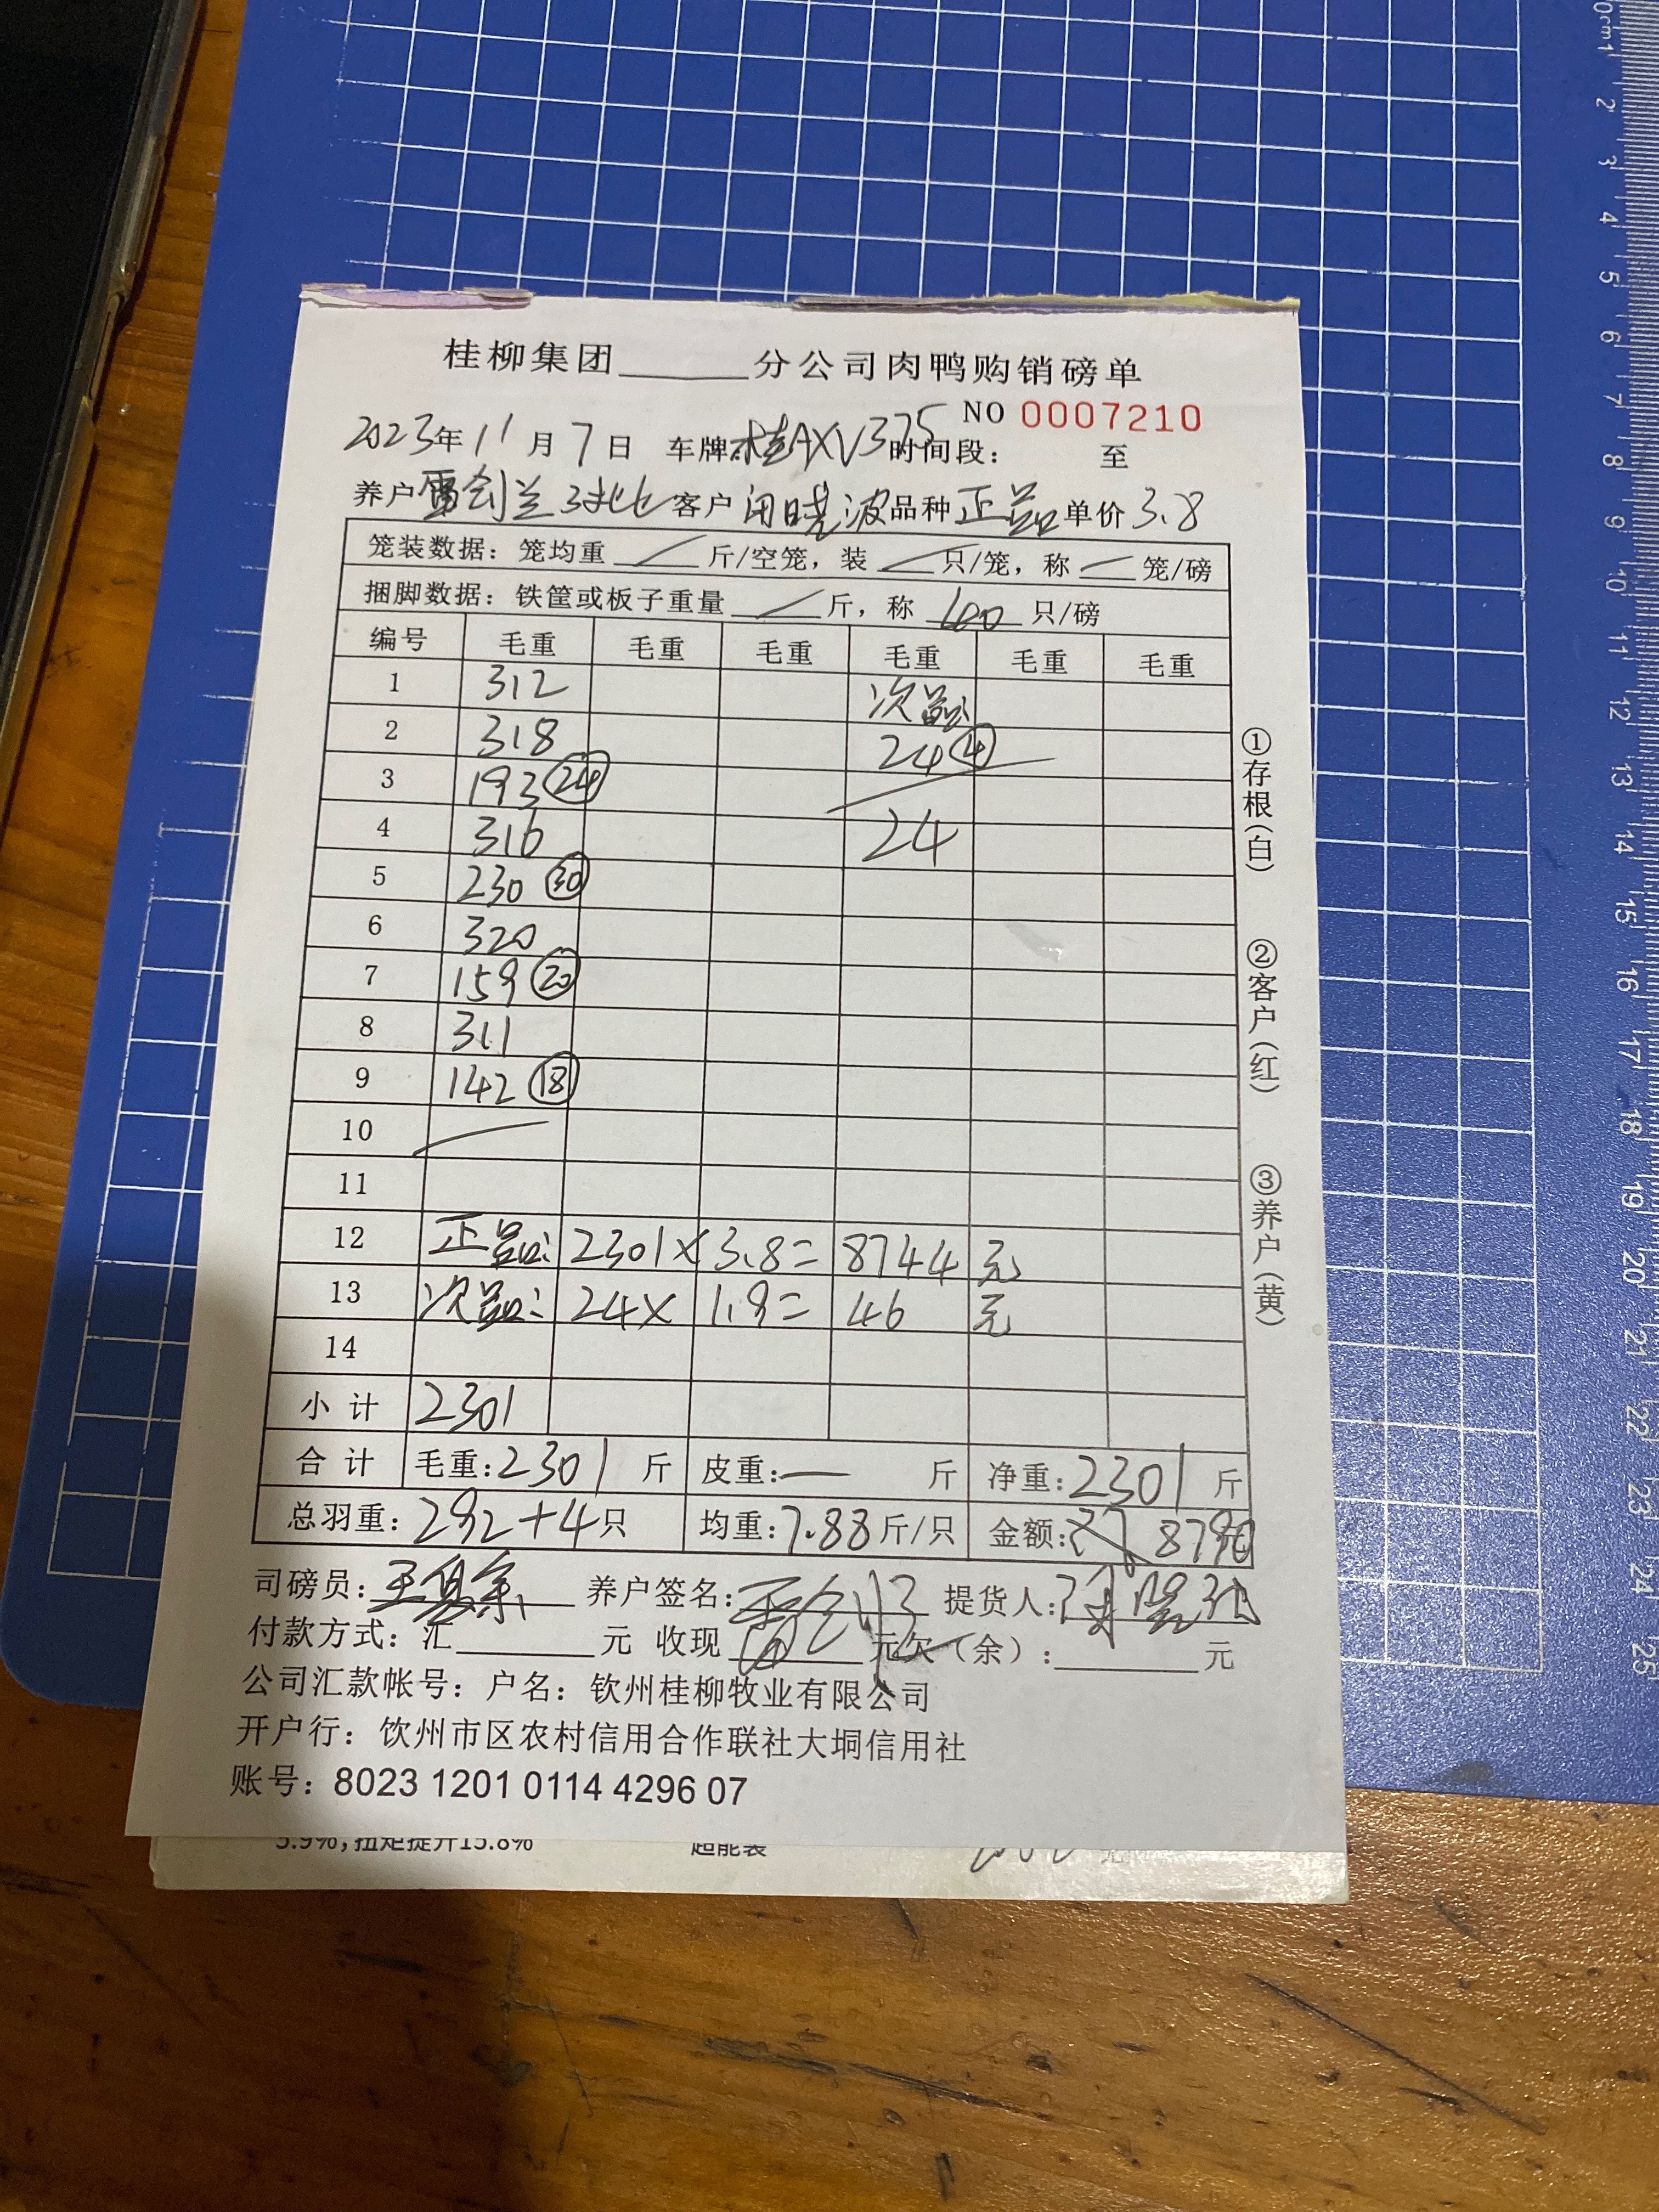 桂柳集团______分公司肉鸭购销磅单
NO 0007210
2023年11月7日 车牌:桂AXV375 时间段: 至
养户 雷剑兰3批 客户 闭晓波 品种 正品 单价 3.8
笼装数据: 笼均重 / 斤/空笼, 装 / 只/笼, 称 / 笼/磅
捆脚数据: 铁筐或板子重量 / 斤, 称 只/磅
编号 毛重 毛重 毛重 毛重 毛重 毛重
1 312 次品:
2 318 24④
3 193㉔
4 316 24
5 230㉚
6 320
7 159⑳
8 311
9 142⑱
10
11
12 正品: 2301× 3.8= 8744 元
13 次品: 24× 1.9= 46 元
14
小计 2301
合计 毛重:2301 斤 皮重:— 斤 净重:2301 斤
总羽重:292+4只 均重:7.88斤/只 金额: 8790
司磅员: 养户签名: 提货人:
付款方式: 汇______元 收现______元欠(余):______元
公司汇款帐号: 户名: 钦州桂柳牧业有限公司
开户行: 钦州市区农村信用合作联社大垌信用社
账号: 8023 1201 0114 4296 07
①存根(白) ②客户(红) ③养户(黄)
5.9%,扭矩提升15.8% 超能装
0cm1 2 3 4 5 6 7 8 9 10 11 12 13 14 15 16 17 18 19 20 21 22 23 24 25